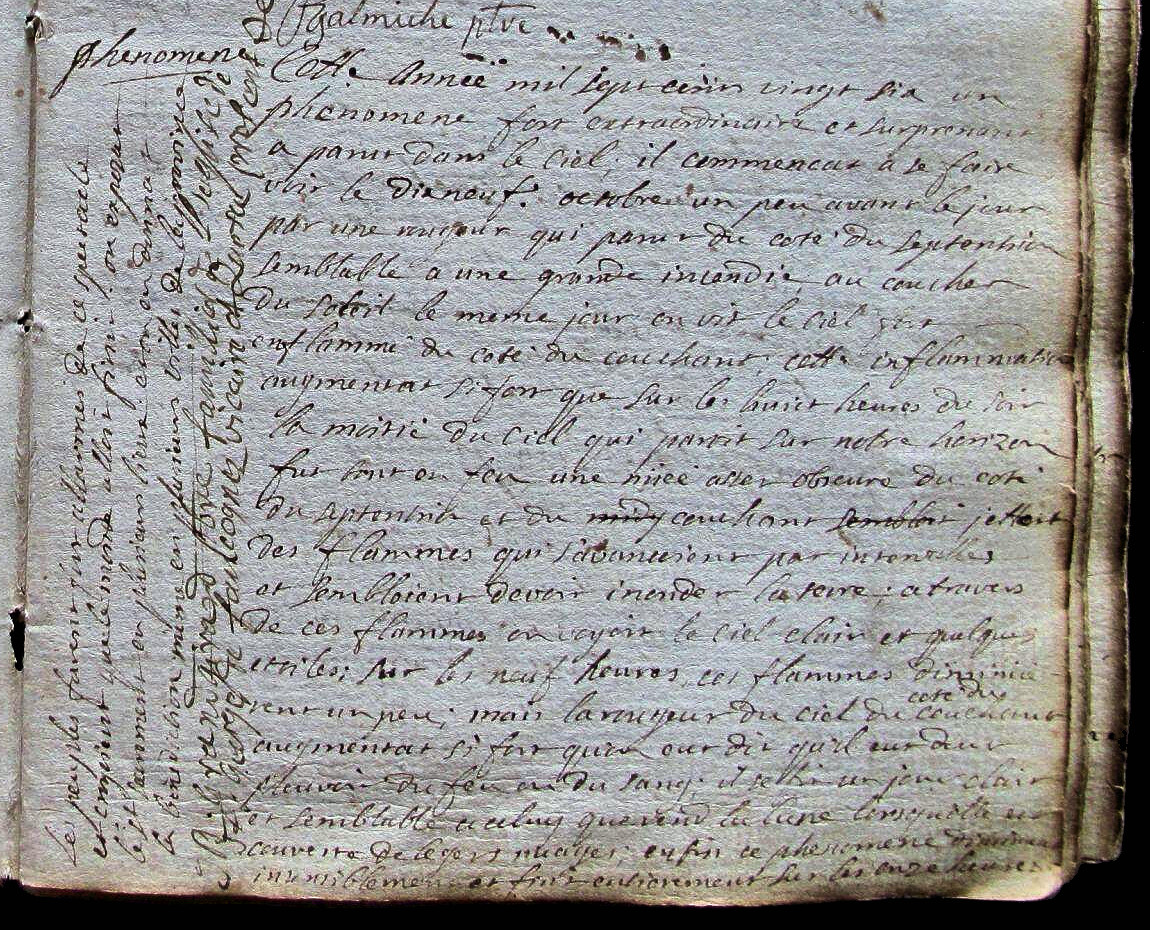 Galmiche ptre
phenomene
Cette Année mil sept cent vingt six un
phenomene fort extraordinaire et surprenant
a parut dans le Ciel; il commencat a se faire
voir le dixneuf. octobre un peu avant le jour
par une rougeur qui parut du coté du septentrion
semblable a une grande incendie, au coucher
du soleil le meme jour on vit le ciel fort
enflammé du coté du couchant; cette inflammation
augmentat si fort que sur les huict heures du soir
la moitié du Ciel qui paroit sur notre horizon
fut tout en feu une nüée asses obscure du coté
du septentrion et du midy couchant sembloit jettoit
des flammes qui s'avancoient par intervalles
et sembloient devoir inonder la terre; a travers
de ces flammes on voyoit le Ciel clair et quelques
etoiles; sur les neuf heures, ces flammes diminue-
rent un peu; mais la rougeur du ciel du couchant
coté du
augmentat si fort qu'on eut dit qu'il eut deut
pleuvoir du feu ou du sang; il se fit un jour clair
et semblable a celuy que rend la lune lorsqu'elle est
couverte de legers nuages; enfin ce phenomene diminua
insensiblement et finit entierement sur les onze heures
les peuples furent si fort allarmés de ce spectacle
et croyoient que le monde alloit finir; on exposat
le st sacrement en plusieurs lieux et on donnat
la benediction même en plusieurs villes de la province